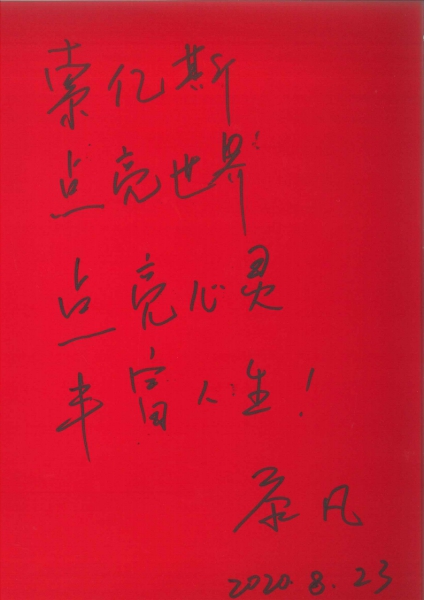 索亿斯
点亮世界
点亮心灵
丰富人生!
凡
2020.8.23